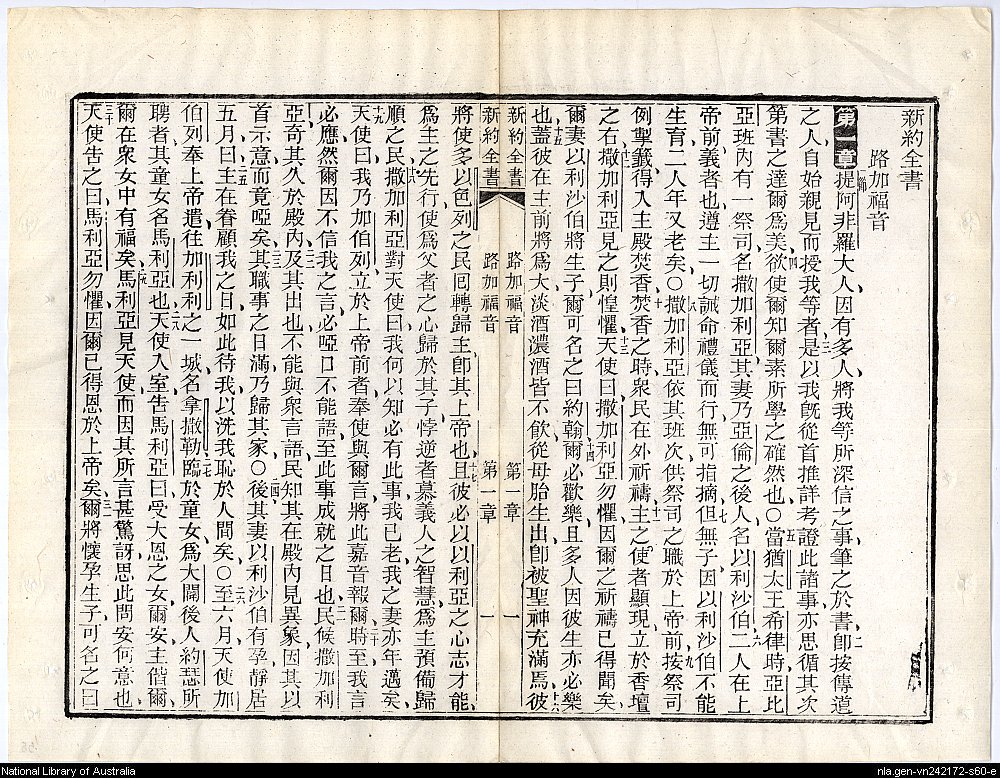 新約全書
路加福音
第一章 一節 提阿非羅大人因有多人將我等所深信之事筆之於書二卽按傳道
之人自始親見而授我等者三是以我旣從首推詳考證此諸事亦思循其次
第書之達爾爲美四欲使爾知爾素所學之確然也〇五當猶太王希律時亞比
亞班內有一祭司名撒加利亞其妻乃亞倫之後人名以利沙伯六二人在上
帝前義者也遵主一切誡命禮儀而行無可指摘七但無子因以利沙伯不能
生育二人年又老矣〇八撒加利亞依其班次供祭司之職於上帝前九按祭司
例掣籤得入主殿焚香十焚香之時衆民在外祈禱十一主之使者顯現立於香壇
之右十二撒加利亞見之則惶懼十三天使曰撒加利亞勿懼因爾之祈禱已得聞矣
爾妻以利沙伯將生子爾可名之曰約翰十四爾必歡樂且多人因彼生亦必樂
也十五蓋彼在主前將爲大淡酒濃酒皆不飮從母胎生出卽被聖神充滿十六焉彼
新約全書 路加福音 第一章 一
新約全書 路加福音 第一章 一
將使多以色列之民囘轉歸主卽其上帝也十七且彼必以以利亞之心志才能
爲主之先行使爲父者之心歸於其子悖逆者慕義人之智慧爲主預備歸
順之民十八撒加利亞對天使曰我何以知必有此事我已老我之妻亦年邁矣
十九天使曰我乃加伯列立於上帝前者奉使與爾言將此嘉音報爾二十時至我言
必應然爾因不信我之言必啞口不能語至此事成就之日也二一民候撒加利
亞奇其久於殿內二二及其出也不能與衆言語民知其在殿內見異象因其以
首示意而竟啞矣二三其職事之日滿乃歸其家〇二四後其妻以利沙伯有孕靜居
五月曰二五主在眷顧我之日如此待我以洗我恥於人間矣〇二六至六月天使加
伯列奉上帝遣往加利利之一城名拿撒勒二七臨於童女爲大闢後人約瑟所
聘者其童女名馬利亞也二八天使入室告馬利亞曰受大恩之女爾安主偕爾
爾在衆女中有福矣二九馬利亞見天使而因其所言甚驚訝思此問安何意也
三十天使告之曰馬利亞勿懼因爾已得恩於上帝矣三一爾將懷孕生子可名之曰
National Library of Australia
nla.gen-vn242172-s60-e